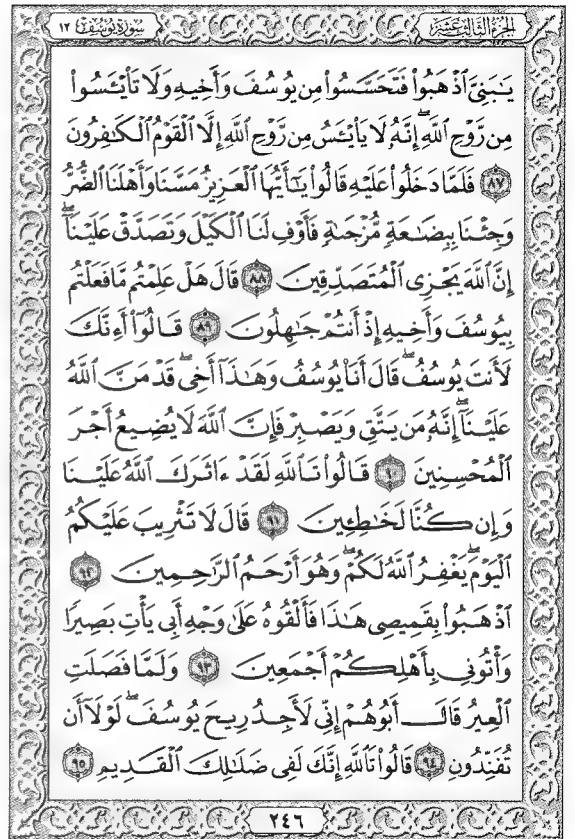 سورة يوسف ١٢ الجزء الثالث عشر
يَٰبَنِىَّ ٱذْهَبُوا۟ فَتَحَسَّسُوا۟ مِن يُوسُفَ وَأَخِيهِ وَلَا تَا۟يْـَٔسُوا۟
مِن رَّوْحِ ٱللَّهِ ۖ إِنَّهُۥ لَا يَا۟يْـَٔسُ مِن رَّوْحِ ٱللَّهِ إِلَّا ٱلْقَوْمُ ٱلْكَٰفِرُونَ
٨٧ فَلَمَّا دَخَلُوا۟ عَلَيْهِ قَالُوا۟ يَٰٓأَيُّهَا ٱلْعَزِيزُ مَسَّنَا وَأَهْلَنَا ٱلضُّرُّ
وَجِئْنَا بِبِضَٰعَةٍ مُّزْجَىٰةٍ فَأَوْفِ لَنَا ٱلْكَيْلَ وَتَصَدَّقْ عَلَيْنَآ ۖ
إِنَّ ٱللَّهَ يَجْزِى ٱلْمُتَصَدِّقِينَ ٨٨ قَالَ هَلْ عَلِمْتُم مَّا فَعَلْتُم
بِيُوسُفَ وَأَخِيهِ إِذْ أَنتُمْ جَٰهِلُونَ ٨٩ قَالُوٓا۟ أَءِنَّكَ
لَأَنتَ يُوسُفُ ۖ قَالَ أَنَا۠ يُوسُفُ وَهَٰذَآ أَخِى ۖ قَدْ مَنَّ ٱللَّهُ
عَلَيْنَآ ۖ إِنَّهُۥ مَن يَتَّقِ وَيَصْبِرْ فَإِنَّ ٱللَّهَ لَا يُضِيعُ أَجْرَ
ٱلْمُحْسِنِينَ ٩٠ قَالُوا۟ تَٱللَّهِ لَقَدْ ءَاثَرَكَ ٱللَّهُ عَلَيْنَا
وَإِن كُنَّا لَخَٰطِـِٔينَ ٩١ قَالَ لَا تَثْرِيبَ عَلَيْكُمُ
ٱلْيَوْمَ ۖ يَغْفِرُ ٱللَّهُ لَكُمْ ۖ وَهُوَ أَرْحَمُ ٱلرَّٰحِمِينَ ٩٢
ٱذْهَبُوا۟ بِقَمِيصِى هَٰذَا فَأَلْقُوهُ عَلَىٰ وَجْهِ أَبِى يَأْتِ بَصِيرًا
وَأْتُونِى بِأَهْلِكُمْ أَجْمَعِينَ ٩٣ وَلَمَّا فَصَلَتِ
ٱلْعِيرُ قَالَ أَبُوهُمْ إِنِّى لَأَجِدُ رِيحَ يُوسُفَ ۖ لَوْلَآ أَن
تُفَنِّدُونِ ٩٤ قَالُوا۟ تَٱللَّهِ إِنَّكَ لَفِى ضَلَٰلِكَ ٱلْقَدِيمِ ٩٥
٢٤٦